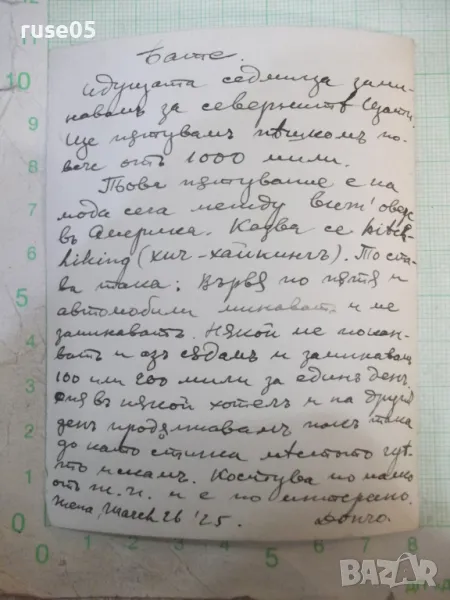 ruse05
Бате.
Идущата седмица зами-
навамъ за севернитѣ щати.
Ще пѫтувамъ пѣшкомъ по-
вече отъ 1000 мили.
Това пѫтувание е на
мода сега между
въ Америка. Казва се hitch-
hiking (хич-хайкингъ). То ста-
ва така: Вървя по пѫтя и
автомобили минаватъ и ме
заминаватъ. Някой ме покан-
ватъ и азъ сѣдамъ и заминавамъ
100 или 200 мили за единъ день.
Спя въ някой хотелъ и на другия
день продължавамъ пакъ така
до като стигна мѣстото гдѣ-
то искамъ. Костува по малко
отъ ж.п. и е по интересно.
March 26 '25. Дончо.
BAZAR.BG